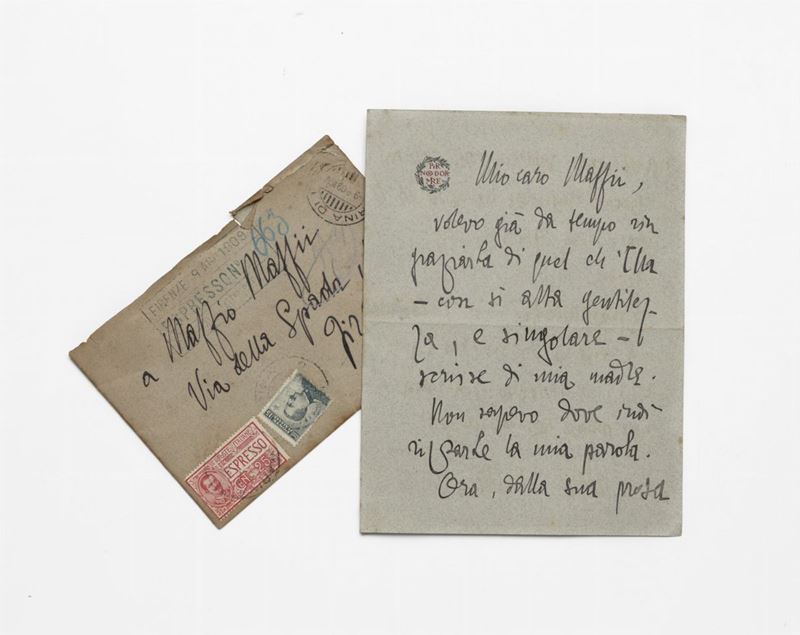 PER
NO DOR
RE
Mio caro Maffii,
volevo già da tempo rin
graziarla di quel ch'Ella
– con sì alta gentilez-
za, e singolare –
scrisse di mia madre.
Non sapevo dove indi
rizzarle la mia parola.
Ora, dalla sua prosa
FIRENZE 9
1909
ESPRESSO N
663
a Maffio Maffii
Via della Spada
ESPRESSO
CENT. 25